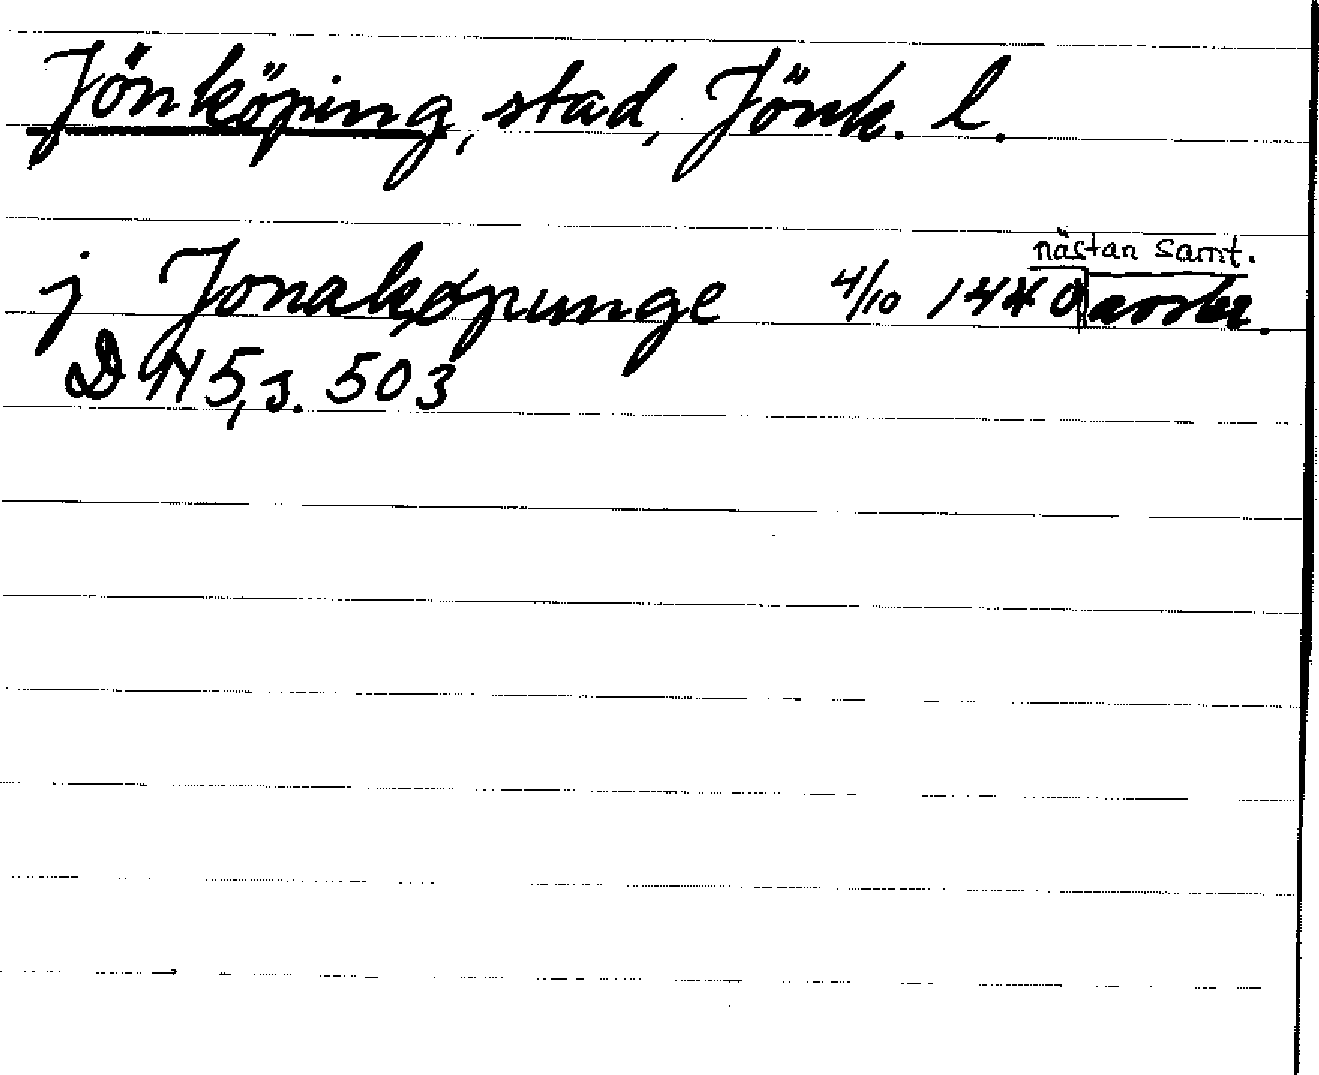 Jönköping, stad, Jönk. l.
nästan samt.
j Jonakøpunge 4/10 1440 avskr.
DN 5, s. 503